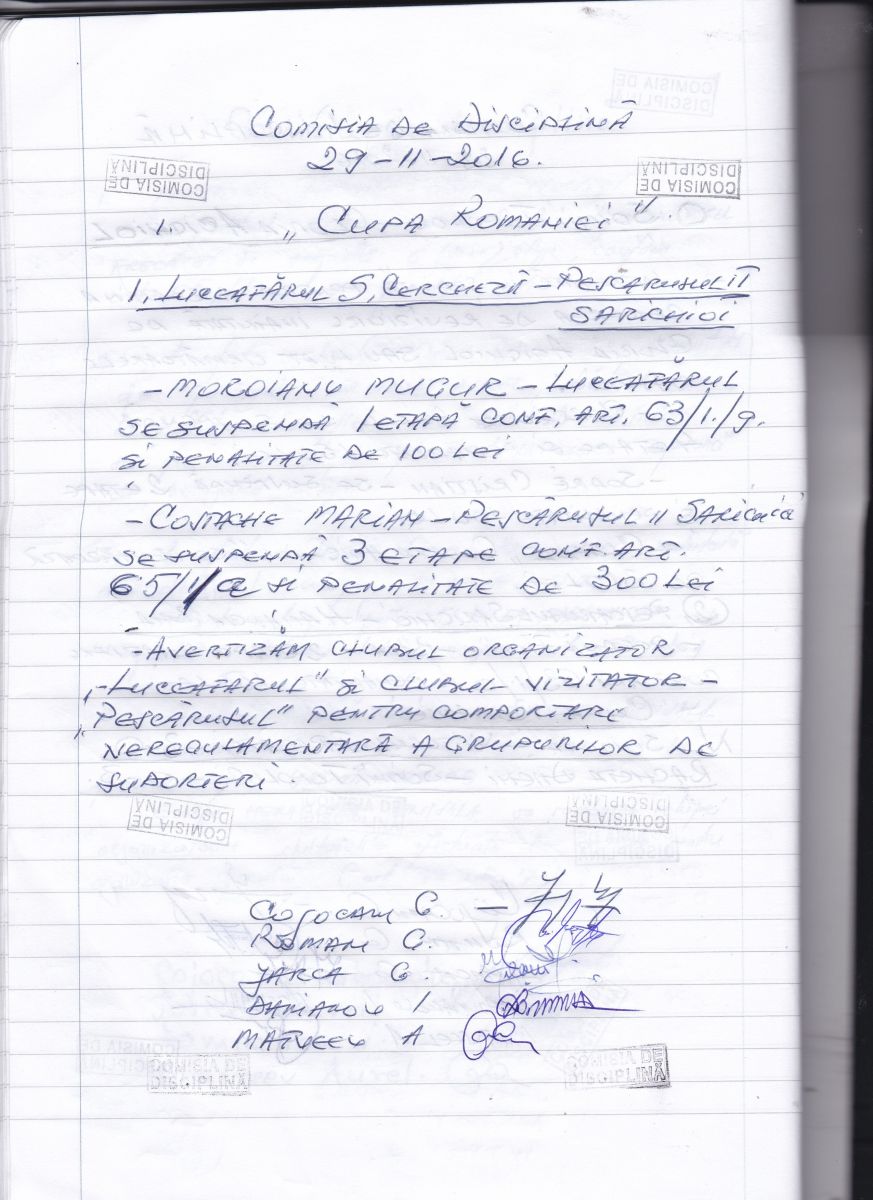 COMISIA DE DISCIPLINĂ
29-11-2016.
COMISIA DE DISCIPLINĂ
COMISIA DE DISCIPLINĂ
1. „CUPA ROMANIEI".
1. LUCEAFĂRUL S. CERCHEZĂ - PESCARUSUL II
SARICHIOI
- MOROIANU MUGUR - LUCEAFĂRUL
SE SUSPENDĂ 1 ETAPĂ CONF. ART. 63/1./g.
ȘI PENALITATE DE 100 LEI
- COSTACHE MARIAN - PESCĂRUSUL II
SE SUSPENDĂ 3 ETAPE CONF. ART.
65/1/a SI PENALITATE DE 300 LEI
- AVERTIZĂM CLUBUL ORGANIZATOR
„-LUCEAFARUL" SI CLUBUL VIZITATOR -
„PESCĂRUSUL" PENTRU COMPORTARE
NEREGULAMENTARĂ A GRUPURILOR DE
SUPORTERI.
COMISIA DE DISCIPLINĂ
COMISIA DE DISCIPLINĂ
COJOCARU G. -
ROMAN G.
JARCA G.
DAMIANOV I
MATVEEV A
COMISIA DE DISCIPLINĂ
COMISIA DE DISCIPLINĂ